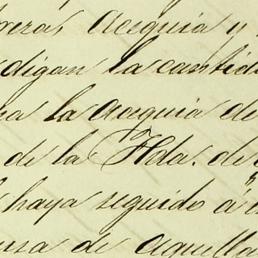 acequia y
digan la cantid
la acequia de
de la Hda. de
haya seguido a
de aquella